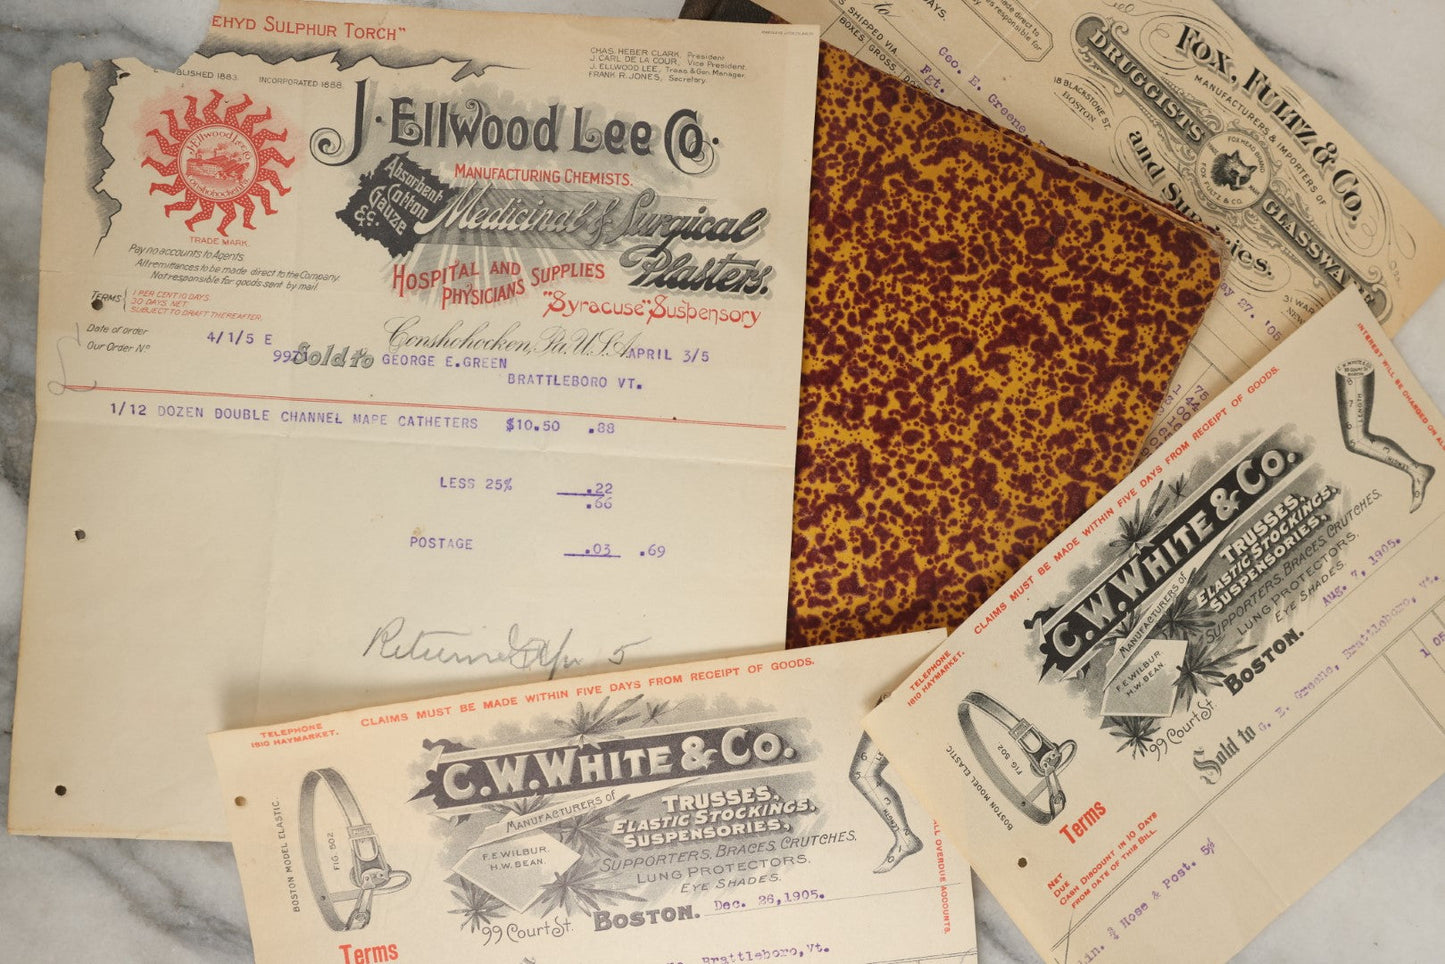 EHYD SULPHUR TORCH"
CHAS. HEBER CLARK, President
J. CARL DE LA COUR, Vice President.
J. ELLWOOD LEE, Treas & Gen. Manager
FRANK R. JONES, Secretary.
BLISHED 1883. INCORPORATED 1888.
J. Ellwood Lee Co.
MANUFACTURING CHEMISTS.
Absorbent
Cotton
Gauze
&c.
Medicinal & Surgical
Plasters.
HOSPITAL AND
PHYSICIANS SUPPLIES
"Syracuse" Suspensory
J. Ellwood Lee Co.
Conshohocken Pa
TRADE MARK.
Pay no accounts to Agents.
All remittances to be made direct to the Company.
Not responsible for goods sent by mail.
TERMS
1 PER CENT 10 DAYS
30 DAYS NET
SUBJECT TO DRAFT THEREAFTER.
Conshohocken, Pa. U.S.A. APRIL 3/5
Date of order 4/1/5 E
Our Order No 9971
Sold to GEORGE E.GREEN
BRATTLEBORO VT.
1/12 DOZEN DOUBLE CHANNEL MAPE CATHETERS $10.50 .88
LESS 25% .22
.66
POSTAGE .03 .69
5
FOX, FULTZ & CO.
MANUFACTURERS & IMPORTERS OF
DRUGGISTS GLASSWARE
and Sundries.
18 BLACKSTONE ST.
BOSTON
FOX HEAD BRAND
FOX FULTZ & CO.
31 WAR
NEW
S SHIPPED VIA
BOXES, GROSS
Frt.
Geo. E. Greene
DAYS.
made direct to
responsible for
ay 27. '05
TELEPHONE
1810 HAYMARKET.
CLAIMS MUST BE MADE WITHIN FIVE DAYS FROM RECEIPT OF GOODS.
INTEREST WILL BE CHARGED ON AL
C.W. WHITE & CO.
MANUFACTURERS OF
TRUSSES,
ELASTIC STOCKINGS,
SUSPENSORIES,
SUPPORTERS, BRACES, CRUTCHES.
LUNG PROTECTORS.
EYE SHADES.
F.E. WILBUR.
H.W. BEAN.
99 Court St. BOSTON. Aug. 7, 1905.
BOSTON MODEL ELASTIC
FIG 502
LENGTH
Sold to G. E. Greene, Brattleboro, Vt.
1 05
Terms
NET
DUE
CASH DISCOUNT IN 10 DAYS
FROM DATE OF THIS BILL.
lin. ¾ Hose & Post. 5¢
TELEPHONE
1810 HAYMARKET.
CLAIMS MUST BE MADE WITHIN FIVE DAYS FROM RECEIPT OF GOODS.
C.W. WHITE & CO.
MANUFACTURERS OF
TRUSSES,
ELASTIC STOCKINGS,
SUSPENSORIES,
SUPPORTERS, BRACES, CRUTCHES.
LUNG PROTECTORS.
EYE SHADES.
F.E. WILBUR.
H.W. BEAN.
99 Court St. BOSTON. Dec. 26, 1905.
BOSTON MODEL ELASTIC.
FIG. 502
LENGTH
LL OVERDUE ACCOUNTS.
Terms
Brattleboro, Vt.